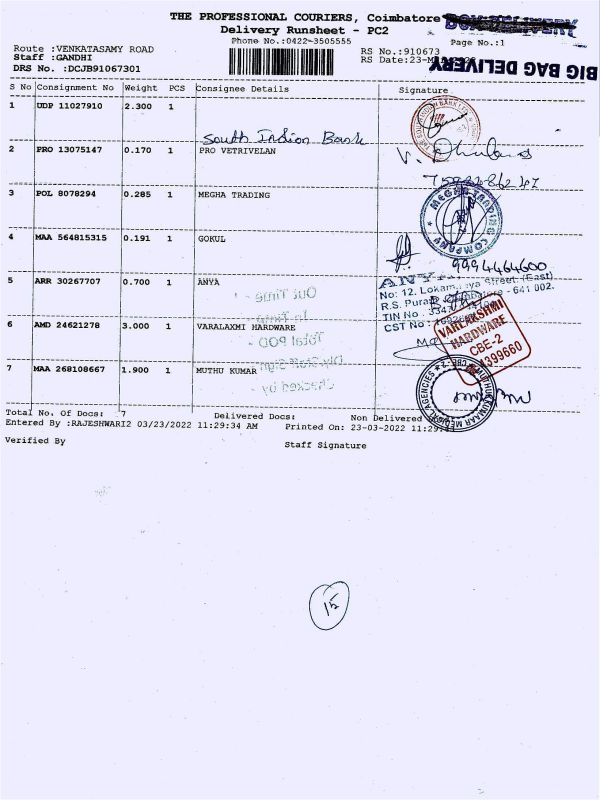 THE PROFESSIONAL COURIERS, Coimbatore
Delivery Runsheet - PC2
Phone No.:0422-3505555
Page No.:1
Route :VENKATASAMY ROAD
RS No.:910673
Staff :GANDHI
RS Date:23-
BIG BAG DELIVERY
DRS No. :DCJB91067301
S No Consignment No Weight PCS Consignee Details Signature
1 UDP 11027910 2.300 1
South Indian Bank
2 PRO 13075147 0.170 1 PRO VETRIVELAN
3 POL 8078294 0.285 1 MEGHA TRADING
MEGHA TRADING COMPANY
4 MAA 564815315 0.191 1 GOKUL
9994464600
5 ARR 30267707 0.700 1 ANYA
No: 12, Street, (East)
R.S. Puram - 641 002.
TIN No
CST No
Out Time
In Time
6 AMD 24621278 3.000 1 VARALAXMI HARDWARE
Total POD
VARLAKSHMI
HARDWARE
CBE-2
4399660
Checked by
7 MAA 268108667 1.900 1 MUTHU KUMAR
MUTHUKUMAR MEDICAL AGENCIES
Total No. Of Docs: 7 Delivered Docs: Non Delivered
Entered By :RAJESHWARI2 03/23/2022 11:29:34 AM Printed On: 23-03-2022 11:29:
Verified By Staff Signature
15